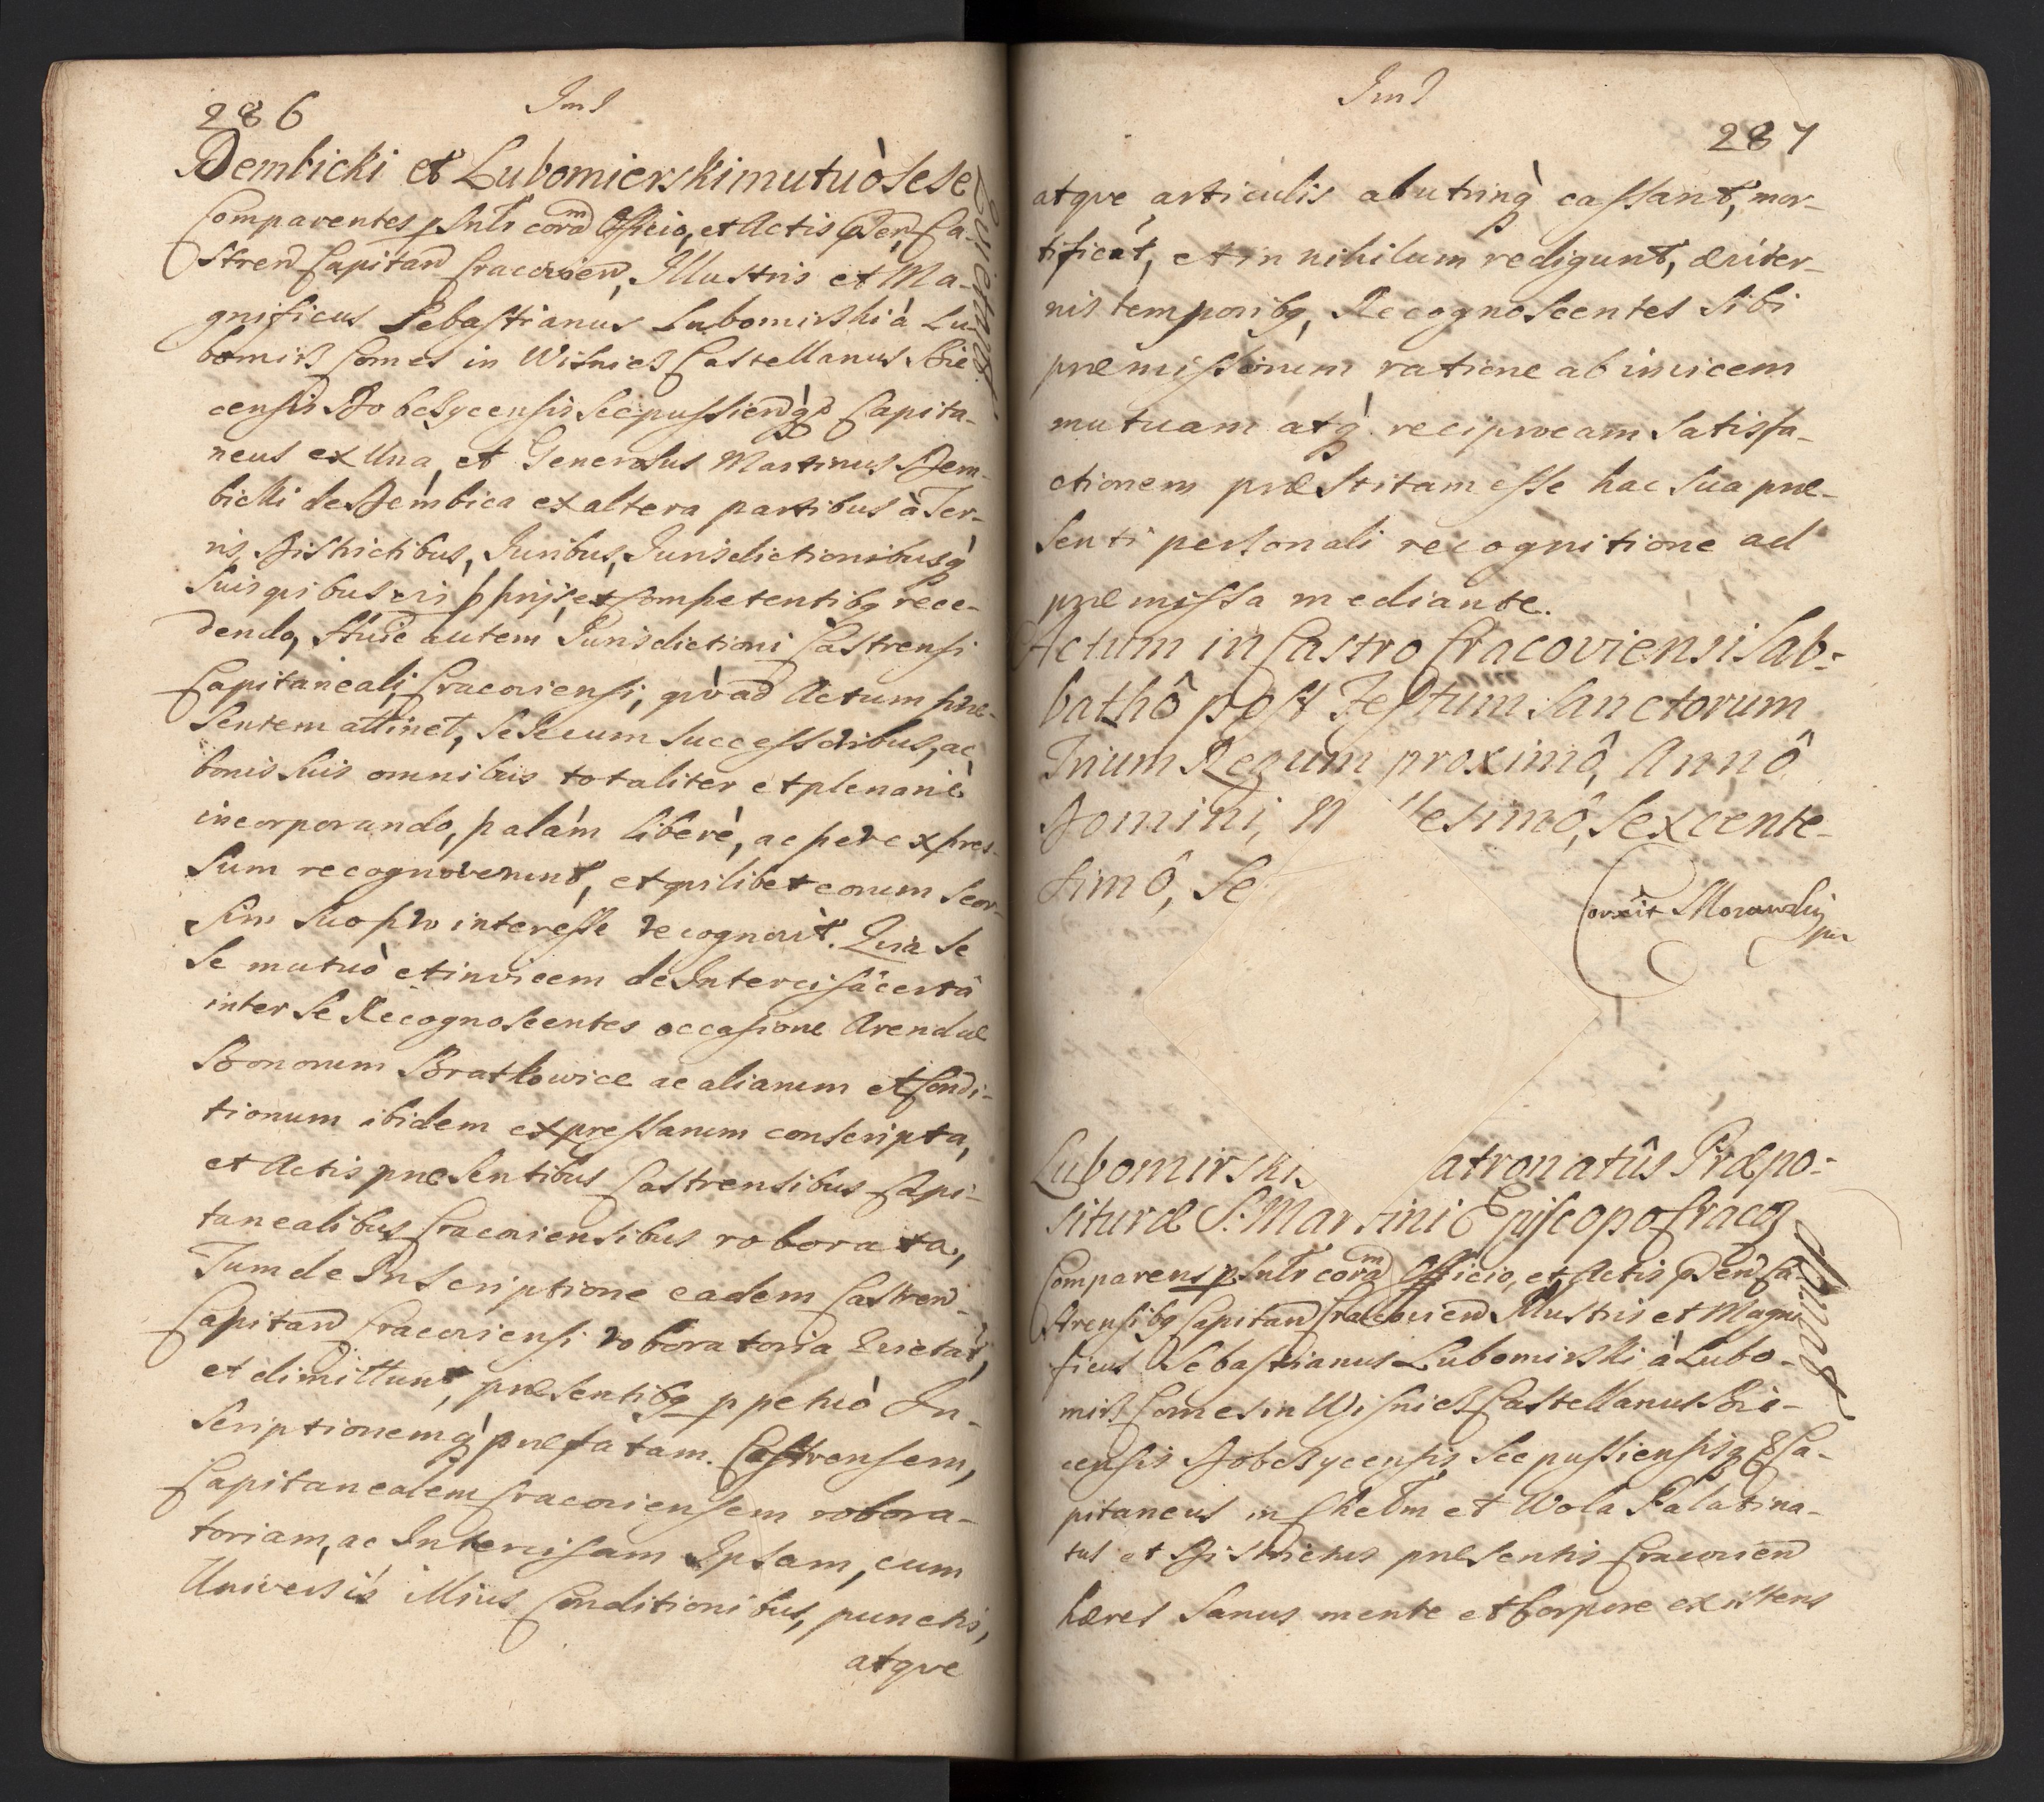 286
Jmś
Dembicki et Lubomierski mutuò sese
Quietant.
Comparentes psntr coram Officio, et Actis psen, Ca-
stren Capitan Cracovien, Illustris et Ma-
gnificus Sebastianus Lubomirski à Lu
bomirz Comes in Wisnicz Castellanus Bie
censis Dobczycensis Scepussienqz Capita-
neus ex Una, et Generosus Martinus Dem-
bicki de Dembica ex altera partibus à Ter-
ris, Districtibus, Juribus, Jurisdictionibusq
suis quibusvis pprijs, et Competentibq rece-
dendo, Huic autem Jurisdictioni Castrensi
Capitaneali, Cracoviensi, qvoad Actum prae-
sentem attinet, sese cum successoribus, ac
bonis suis omnibus totaliter et plenariè
incorporando, palàm liberè, ac per expres-
sum recognoverunt, et quilibet eorum seor-
sim suo pro interesse recognovit. Quia se
se mutuò et invicem de Intercisâ certâ
inter se Recognoscentes occasione Arendae
Bonorum Bratkowice ac aliarum et Condi-
tionum ibidem expressarum conscripta,
et Actis praesentibus Castrensibus Capi-
tanealibus Cracoviensibus roborata,
Tum de Inscriptione eadem Castren-
Capitan Cracoviensi roboratoria Quietat,
et dimittunt, praesentibq ppetuò In-
scriptionemq praefatam. Castrensem,
Capitanealem Cracoviensem robora-
toriam, ac Intercisam Ipsam, cum
Universis illius Conditionibus, punctis,
atqve
Jmś
287
atqve articulis ab utrinq cassant, mor-
tificat, et in nihilum redigunt, aeviter-
nis temporibq, Recognoscentes sibi
praemissorum ratione ab invicem
mutuam atq reciprocam satisfa-
ctionem praestitam esse hac sua prae-
senti personali recognitione ad
praemissa mediante.
Actum in Castro Cracoviensi Sab-
bathô post Festum Sanctorum
Trium Regum proximô, Annô
Domini, M llesimô, Sexcente-
simô, Se
Correxit Morawski
mp
Lubomirski atronatûs Praepo-
siturae S. Martini Episcopo Cracoq
donat
Comparens psntr coram Officio, et Actis psen Ca-
strensibq Capitan Cracovien Illustris et Magni
ficus Sebastianus Lubomirski à Lubo-
mirz Comes in Wisnicz Castellanus Bie-
censis Dobczycensis, Scepussiensisq & Ca-
pitaneus in Chełm et Wola Palatina-
tus et Districtus praesentis Cracovien
haeres sanus mente et Corpore existens